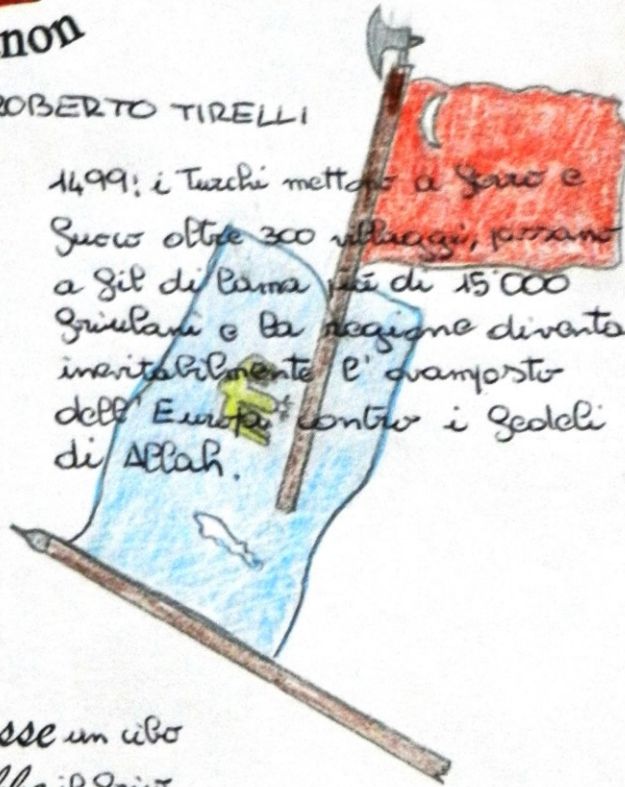 non
ROBERTO TIRELLI
1499: i Turchi mettono a ferro e
fuoco oltre 300 villaggi, passano
a fil di lama più di 15'000
friulani e la regione diventa
inevitabilmente l'avamposto
dell'Europa contro i fedeli
di Allah.
sse un cibo